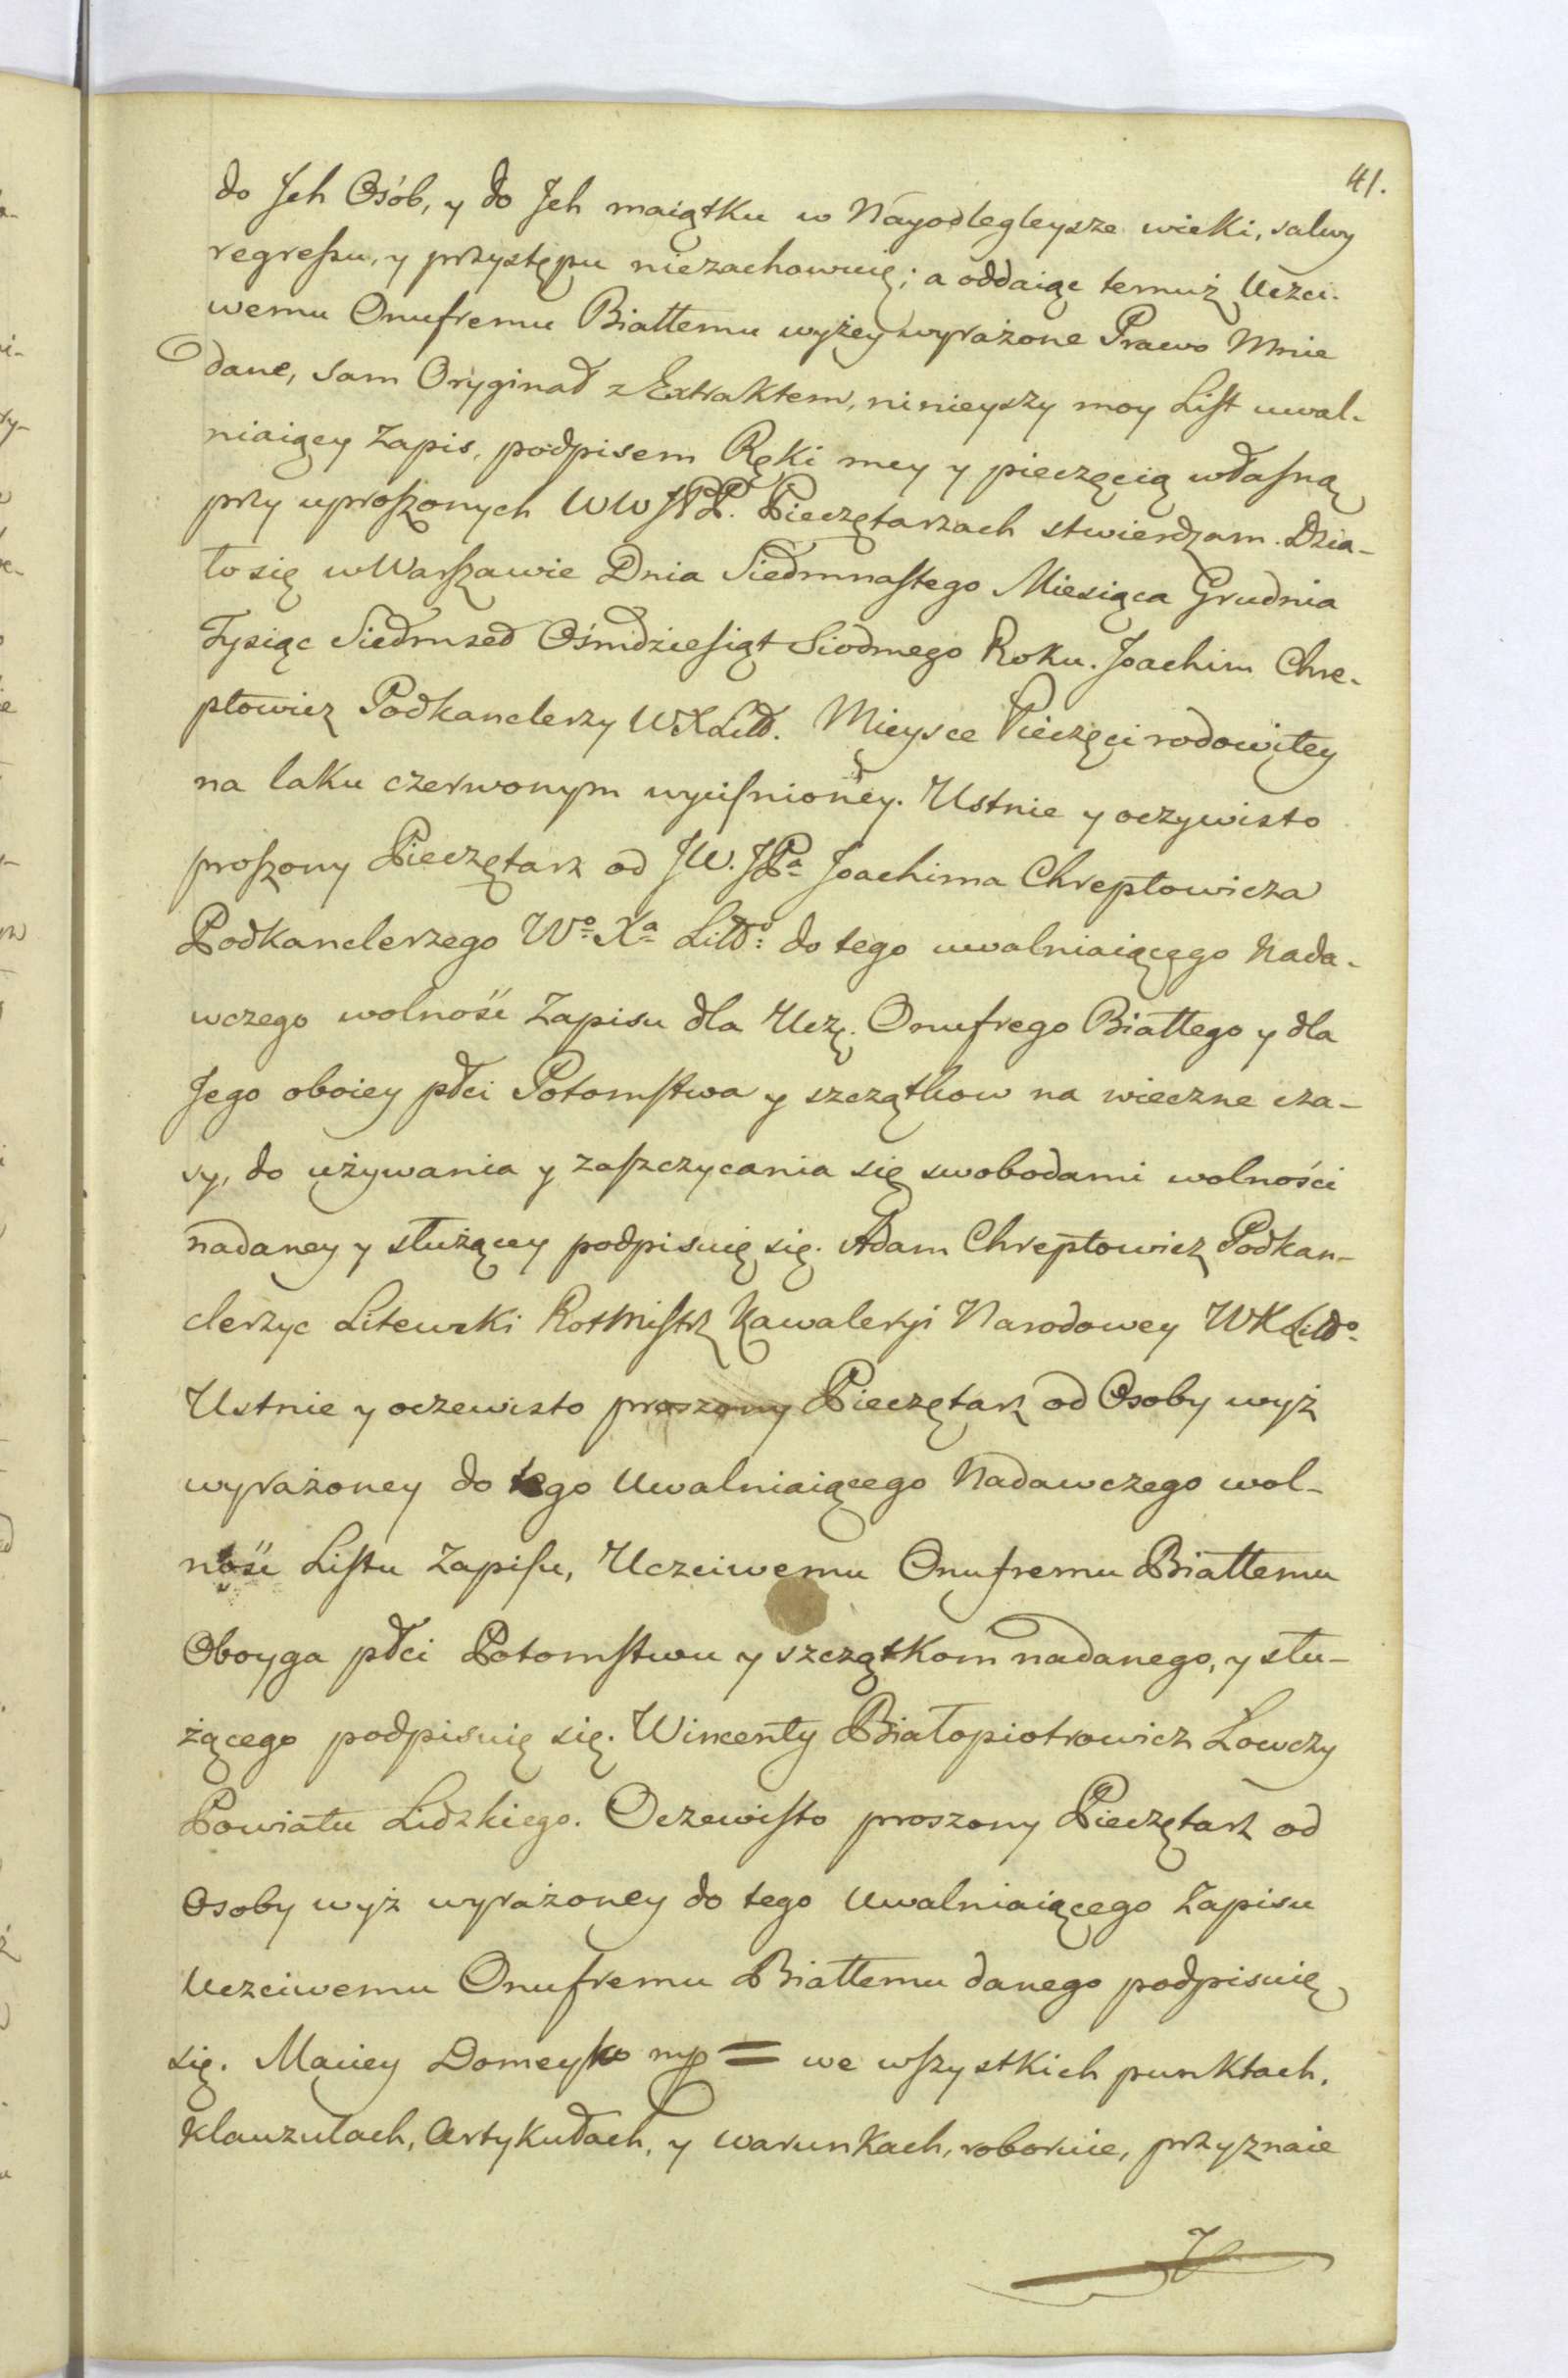 41.
do Jch Osób, y do Jch maiątku w Nayodlegleysze wieki, salwy
regreſsu, y przystępu niezachowuię; a oddaiąc temuż Uczci-
wemu Onufremu Białłemu wyżey wyrażone Prawo Mnie
dane, sam Oryginał z Extraktem, ninieyszy moy Liſt uwal-
niaiący Zapis, podpisem Ręki mey y pieczęcią własną
przy uproſzonych WWJPP. Pieczętarzach stwierdzam. Dzia-
ło się w Warſzawie Dnia Siedmnaſtego Miesiąca Grudnia
Tysiąc Siedmset Ośmdzieſiąt Siodmego Roku. Joachim Chre-
ptowicz Podkanclerzy WXLitt. Mieysce Pieczęci rodowitey
na laku czerwonym wyciſnioney. Ustnie y oczywisto
proſzony Pieczętarz od JW. JPa Joachima Chreptowicza
Podkanclerzego Wo Xa Litto: do tego uwalniaiącego Nada-
wczego wolność Zapisu dla Ucz. Onufrego Białłego y dla
Jego oboiey płci Potomſtwa y szczątkow na wieczne cza-
sy, do używania y zaſzczycania się swobodami wolności
nadaney y służącey podpisuię się. Adam Chreptowicz Podkan-
clerzyc Litewski Rotmiſtrz Kawaleryi Narodowey WXLitto.
Ustnie y oczewisto proszony Pieczętarz od Osoby wyż
wyrażoney do tego Uwalniaiącego Nadawczego wol-
ność Liſtu Zapiſu, Uczciwemu Onufremu Białłemu
Oboyga płci Potomſtwu y szczątkom nadanego, y słu-
żącego podpisuię się. Wincenty Białopiotrowicz Łowczy
Powiatu Lidzkiego. Oczewiſto proszony Pieczętarz od
Osoby wyż wyrażoney do tego Uwalniaiącego Zapisu
Uczciwemu Onufremu Białłemu danego podpisuię
się. Maciey Domeyko mp = we wſzystkich punktach,
klauzulach, Artykułach, y warunkach, roboruie, przyznaie